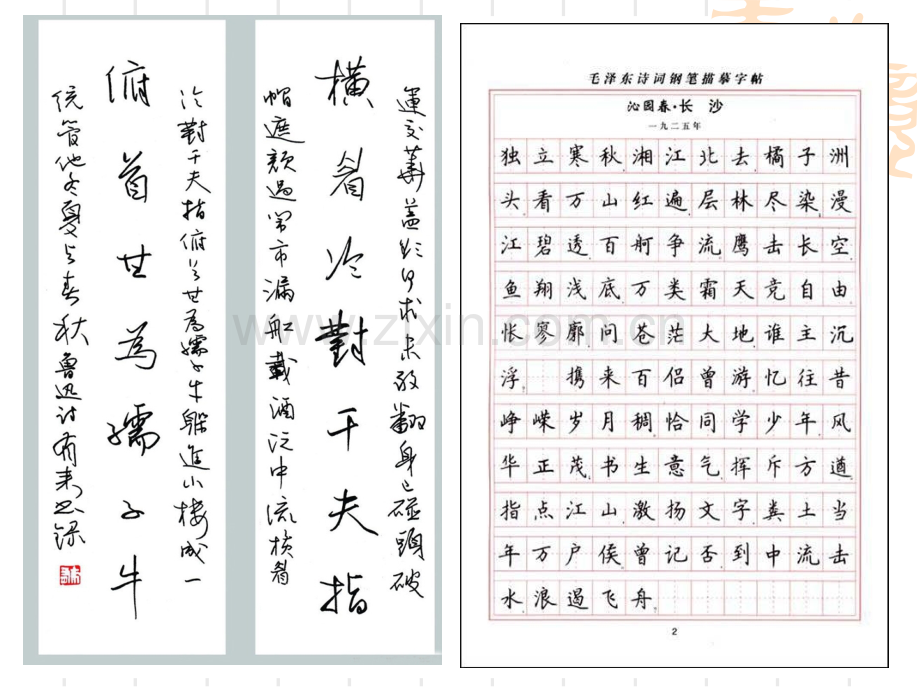 運交華蓋欲何求未敢翻身已碰頭破
横眉冷對千夫指
帽遮颜過闹市漏船載酒泛中流横眉
冷對千夫指俯首甘為孺子牛躲進小樓成一
俯首甘為孺子牛
统管他冬夏与春秋 鲁迅诗
毛泽东诗词钢笔描摹字帖
沁园春·长 沙
一九二五年
独立寒秋湘江北去橘子洲
头看万山红遍层林尽染漫
江碧透百舸争流鹰击长空
鱼翔浅底万类霜天竞自由
怅寥廓问苍茫大地谁主沉
浮 携来百侣曾游忆往昔
峥嵘岁月稠恰同学少年风
华正茂书生意气挥斥方遒
指点江山激扬文字粪土当
年万户侯曾记否到中流击
水浪遏飞舟
2
www.zixin.com.cn